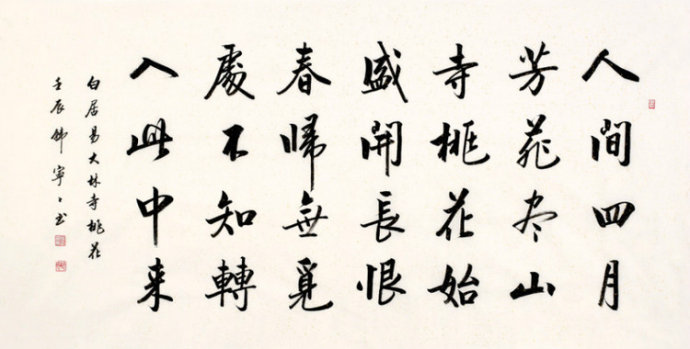 人間四月
芳菲尽山
寺桃花始
盛開長恨
春歸無覓
處不知轉
入此中来
白居易大林寺桃花
壬辰 寧〻书